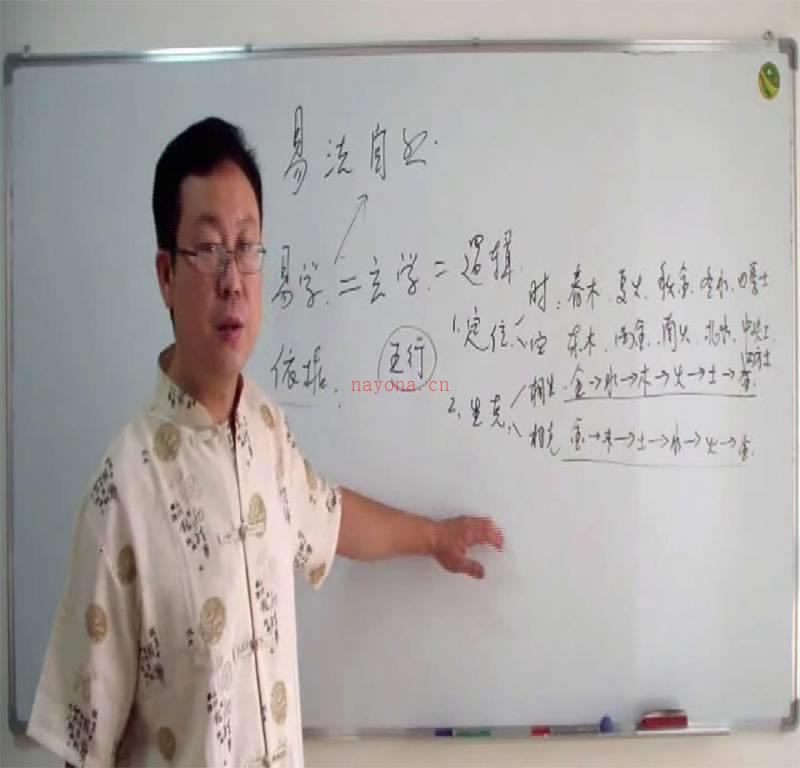 易法自然.
易学 = 玄学 = 逻辑.
依据:
五行
1. 定位
时: 春木. 夏火. 秋金. 冬水. 四季土
空 东木. 西金. 南火. 北水. 中央土
四方土
2. 生克
相生 金→水→木→火→土→金.
相克 金→木→土→水→火→金.
nayona.cn